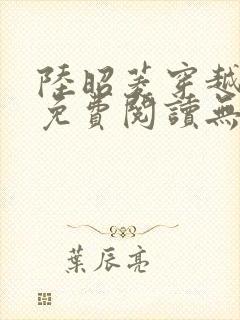 陸昭菱穿越
免費閱讀無
葉辰亮